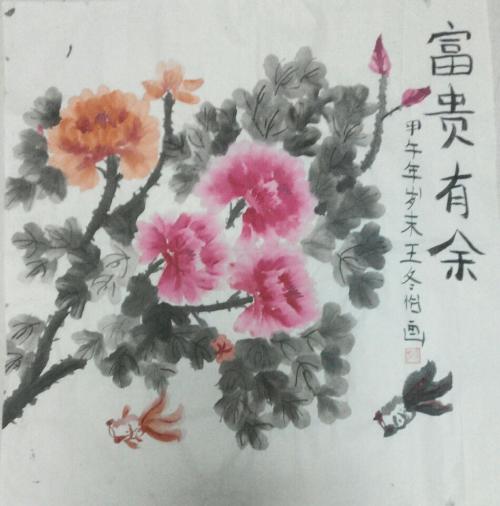 富贵有余
甲午年岁末王冬怡画